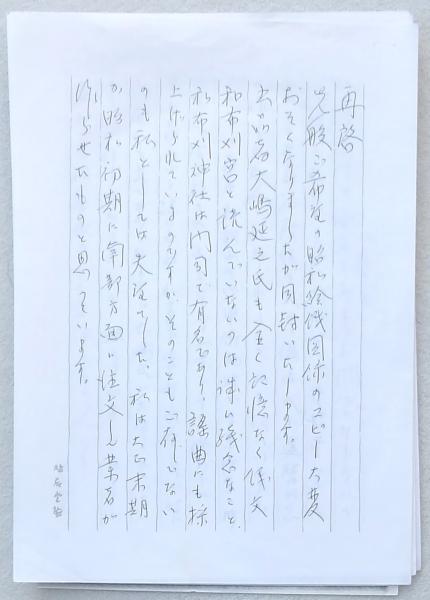 再啓
先般ご希望の昭和絵銭図係のコピー大変
おそくなりましたが同封いたします。
出品者大嶋延之氏も全く記憶なく銭文
和布刈宮と読んでいないのは誠に残念なこと、
和布刈神社は門司で有名であり、謡曲にも採
上げられているのですが、そのこともご存じない
のも私としては失望でした。私は大正末期
か昭和初期に南部方面に注文し業者が
作らせたものと思っています。